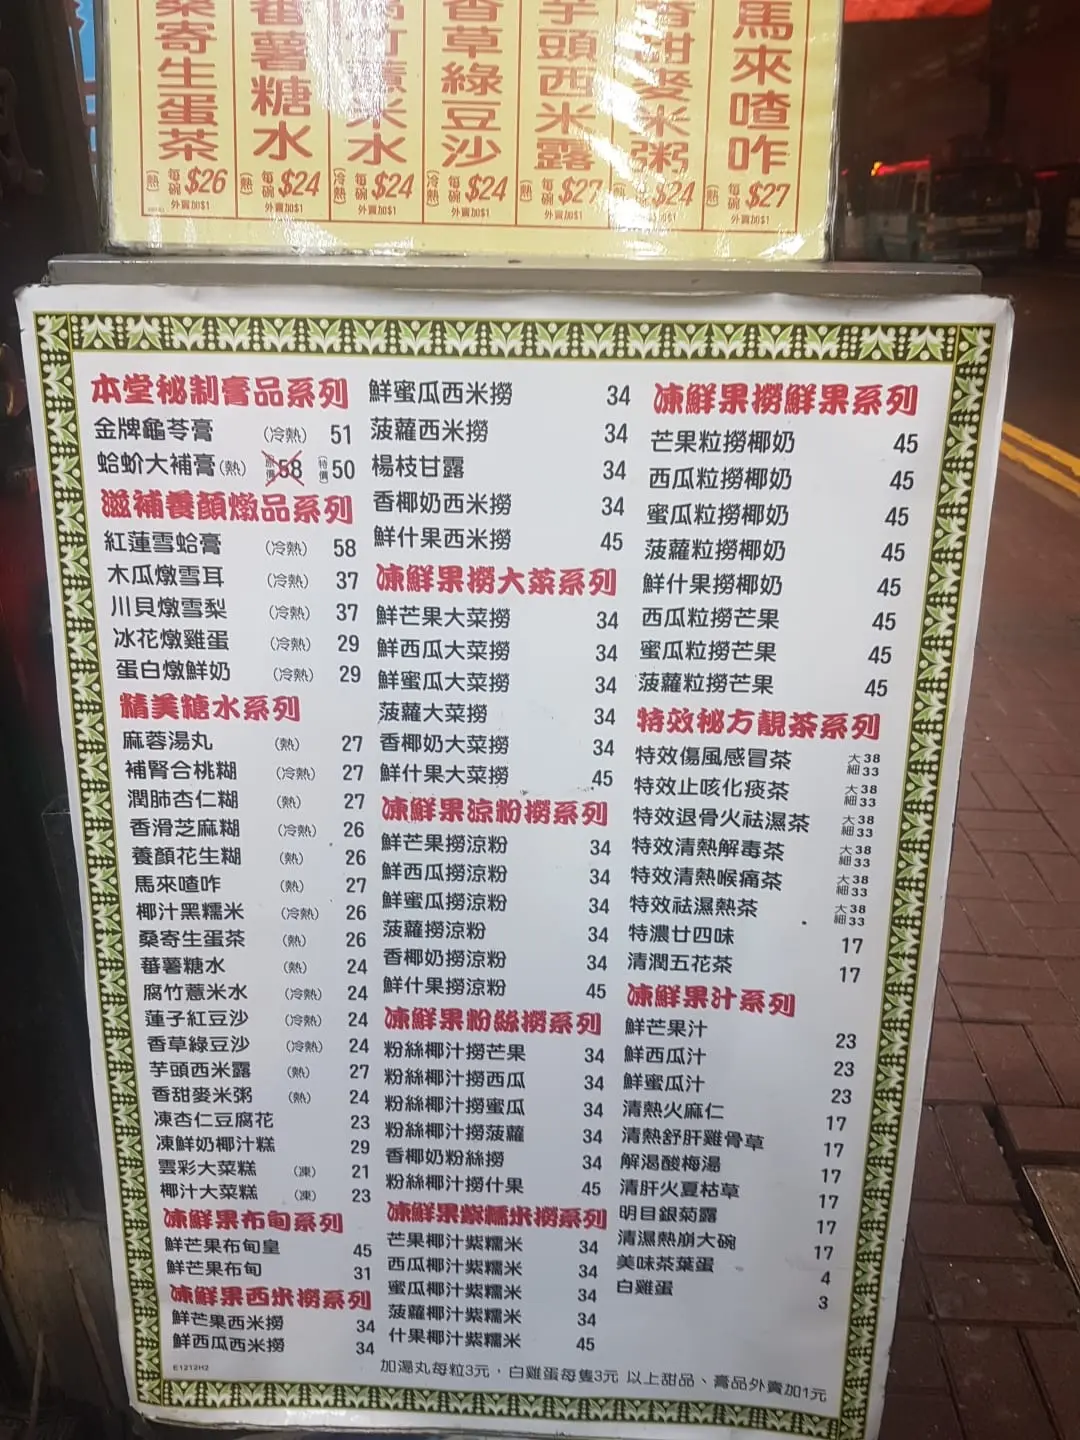 桑寄生蛋茶
(熱) 每碗 $26
外賣加$1
番薯糖水
(熱) 每碗 $24
外賣加$1
竹薏米水
(冷熱) 每碗 $24
外賣加$1
香草綠豆沙
(冷熱) 每碗 $24
外賣加$1
芋頭西米露
(熱) 每碗 $27
外賣加$1
香甜麥米粥
(熱) 每碗 $24
外賣加$1
馬來喳咋
(熱) 每碗 $27
外賣加$1
本堂秘制膏品系列
金牌龜苓膏 (冷熱) 51
蛤蚧大補膏 (熱) 原價58 特價50
滋補養顏燉品系列
紅蓮雪蛤膏 (冷熱) 58
木瓜燉雪耳 (冷熱) 37
川貝燉雪梨 (冷熱) 37
冰花燉雞蛋 (冷熱) 29
蛋白燉鮮奶 (冷熱) 29
精美糖水系列
麻蓉湯丸 (熱) 27
補腎合桃糊 (冷熱) 27
潤肺杏仁糊 (熱) 27
香滑芝麻糊 (冷熱) 26
養顏花生糊 (熱) 26
馬來喳咋 (熱) 27
椰汁黑糯米 (冷熱) 26
桑寄生蛋茶 (熱) 26
蕃薯糖水 (熱) 24
腐竹薏米水 (冷熱) 24
蓮子紅豆沙 (冷熱) 24
香草綠豆沙 (冷熱) 24
芋頭西米露 (熱) 27
香甜麥米粥 (熱) 24
凍杏仁豆腐花 23
凍鮮奶椰汁糕 29
雲彩大菜糕 (凍) 21
椰汁大菜糕 (凍) 23
凍鮮果布甸系列
鮮芒果布甸皇 45
鮮芒果布甸 31
凍鮮果西米撈系列
鮮芒果西米撈 34
鮮西瓜西米撈 34
E1212H2
鮮蜜瓜西米撈 34
菠蘿西米撈 34
楊枝甘露 34
香椰奶西米撈 34
鮮什果西米撈 45
凍鮮果撈大菜系列
鮮芒果大菜撈 34
鮮西瓜大菜撈 34
鮮蜜瓜大菜撈 34
菠蘿大菜撈 34
香椰奶大菜撈 34
鮮什果大菜撈 45
凍鮮果涼粉撈系列
鮮芒果撈涼粉 34
鮮西瓜撈涼粉 34
鮮蜜瓜撈涼粉 34
菠蘿撈涼粉 34
香椰奶撈涼粉 34
鮮什果撈涼粉 45
凍鮮果粉絲撈系列
粉絲椰汁撈芒果 34
粉絲椰汁撈西瓜 34
粉絲椰汁撈蜜瓜 34
粉絲椰汁撈菠蘿 34
香椰奶粉絲撈 34
粉絲椰汁撈什果 45
凍鮮果紫糯米撈系列
芒果椰汁紫糯米 34
西瓜椰汁紫糯米 34
蜜瓜椰汁紫糯米 34
菠蘿椰汁紫糯米 34
什果椰汁紫糯米 45
凍鮮果撈鮮果系列
芒果粒撈椰奶 45
西瓜粒撈椰奶 45
蜜瓜粒撈椰奶 45
菠蘿粒撈椰奶 45
鮮什果撈椰奶 45
西瓜粒撈芒果 45
蜜瓜粒撈芒果 45
菠蘿粒撈芒果 45
特效秘方靚茶系列
特效傷風感冒茶 大38 細33
特效止咳化痰茶 大38 細33
特效退骨火祛濕茶 大38 細33
特效清熱解毒茶 大38 細33
特效清熱喉痛茶 大38 細33
特效祛濕熱茶 大38 細33
特濃廿四味 17
清潤五花茶 17
凍鮮果汁系列
鮮芒果汁 23
鮮西瓜汁 23
鮮蜜瓜汁 23
清熱火麻仁 17
清熱舒肝雞骨草 17
解渴酸梅湯 17
清肝火夏枯草 17
明目銀菊露 17
清濕熱崩大碗 17
美味茶葉蛋 4
白雞蛋 3
加湯丸每粒3元，白雞蛋每隻3元 以上甜品、膏品外賣加1元